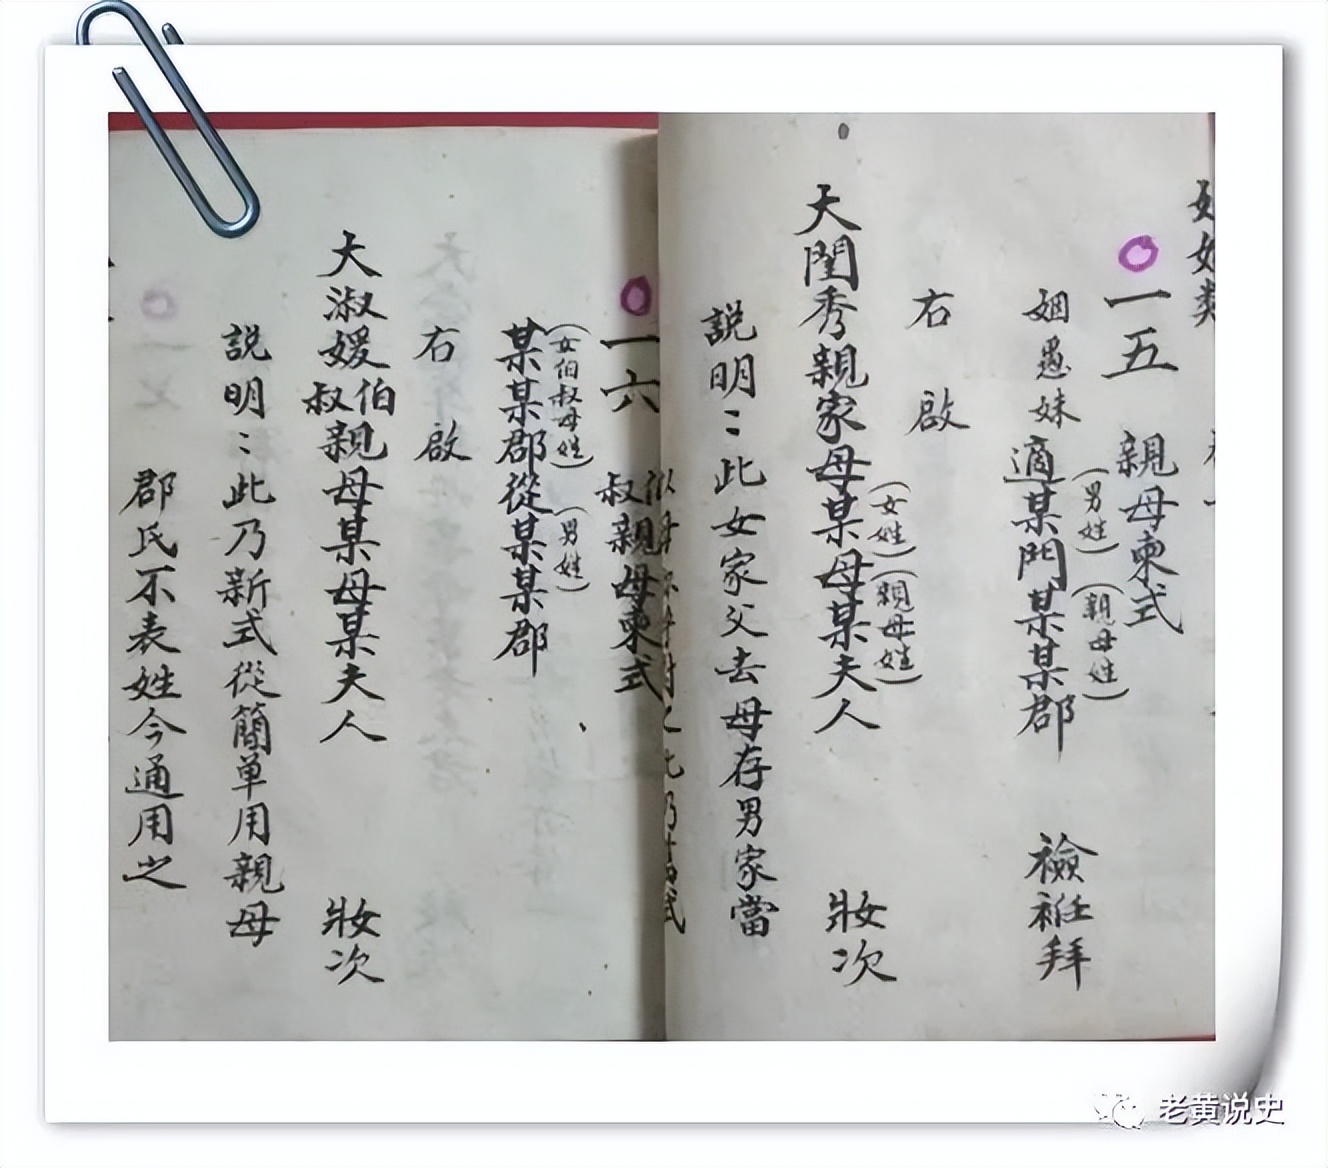 一五 親母柬式
(男姓)(親母姓)
姻愚妹 適某門某某郡 襝衽拜
右 啟
(女姓)(親母姓)
大閨秀親家母某母某夫人 妝次
説明：此女家父去母存男家當
一六 伯叔親母柬式
(女伯叔母姓)(男姓)
某某郡從某某郡
右 啟
大淑媛伯叔親母某母某夫人 妝次
説明：此乃新式從簡單用親母
郡氏不表姓今通用之
老黄说史